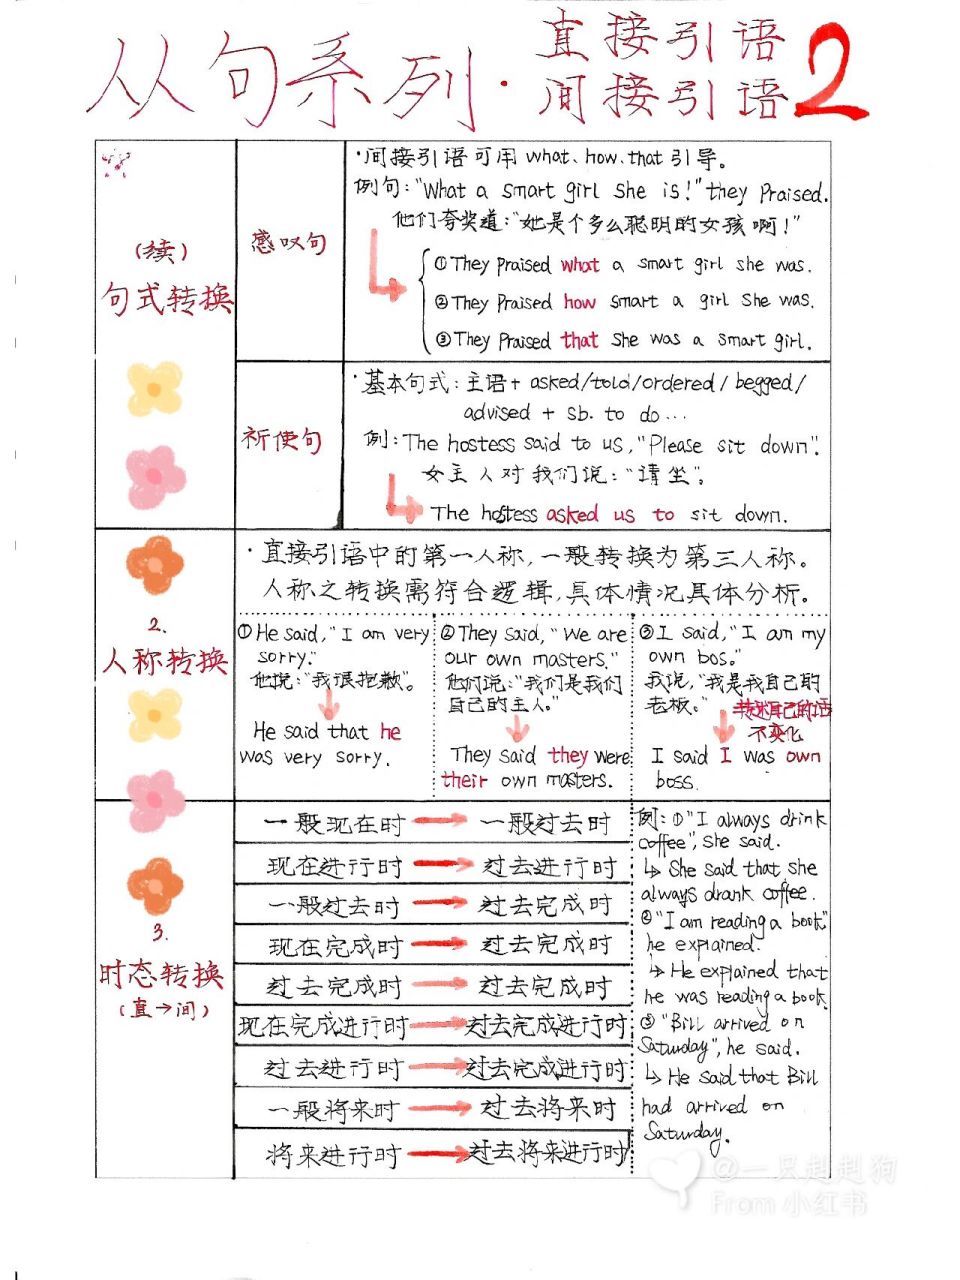 从句系列·直接引语
间接引语2
(续)
句式转换
感叹句
·间接引语可用 what、how、that 引导。
例句:"What a smart girl she is!" they Praised.
他们夸奖道:"她是个多么聪明的女孩啊!"
①They Praised what a smart girl she was.
②They Praised how smart a girl she was.
③They Praised that she was a smart girl.
祈使句
·基本句式:主语+ asked/told/ordered/begged/
advised + sb. to do...
例:The hostess said to us, "Please sit down".
女主人对我们说:"请坐"。
The hostess asked us to sit down.
2.
人称转换
·直接引语中的第一人称,一般转换为第三人称。
人称之转换需符合逻辑,具体情况具体分析。
①He said, "I am very
sorry."
他说:"我很抱歉"。
He said that he
was very sorry.
②They said, "We are
our own masters."
他们说:"我们是我们
自己的主人。"
They said they were
their own masters.
③I said, "I am my
own bos."
我说,"我是我自己的
老板。"
转述自己的话
不变化
I said I was own
boss.
3.
时态转换
(直→间)
一般现在时 → 一般过去时
现在进行时 → 过去进行时
一般过去时 → 过去完成时
现在完成时 → 过去完成时
过去完成时 → 过去完成时
现在完成进行时 → 过去完成进行时
过去进行时 → 过去完成进行时
一般将来时 → 过去将来时
将来进行时 → 过去将来进行时
例:①"I always drink
coffee", she said.
↳ She said that she
always drank coffee.
②"I am reading a book"
he explained.
↳ He explained that
he was reading a book.
③"Bill arrived on
Saturday", he said.
↳ He said that Bill
had arrived on
Saturday.
@一只赳赳狗
From 小红书